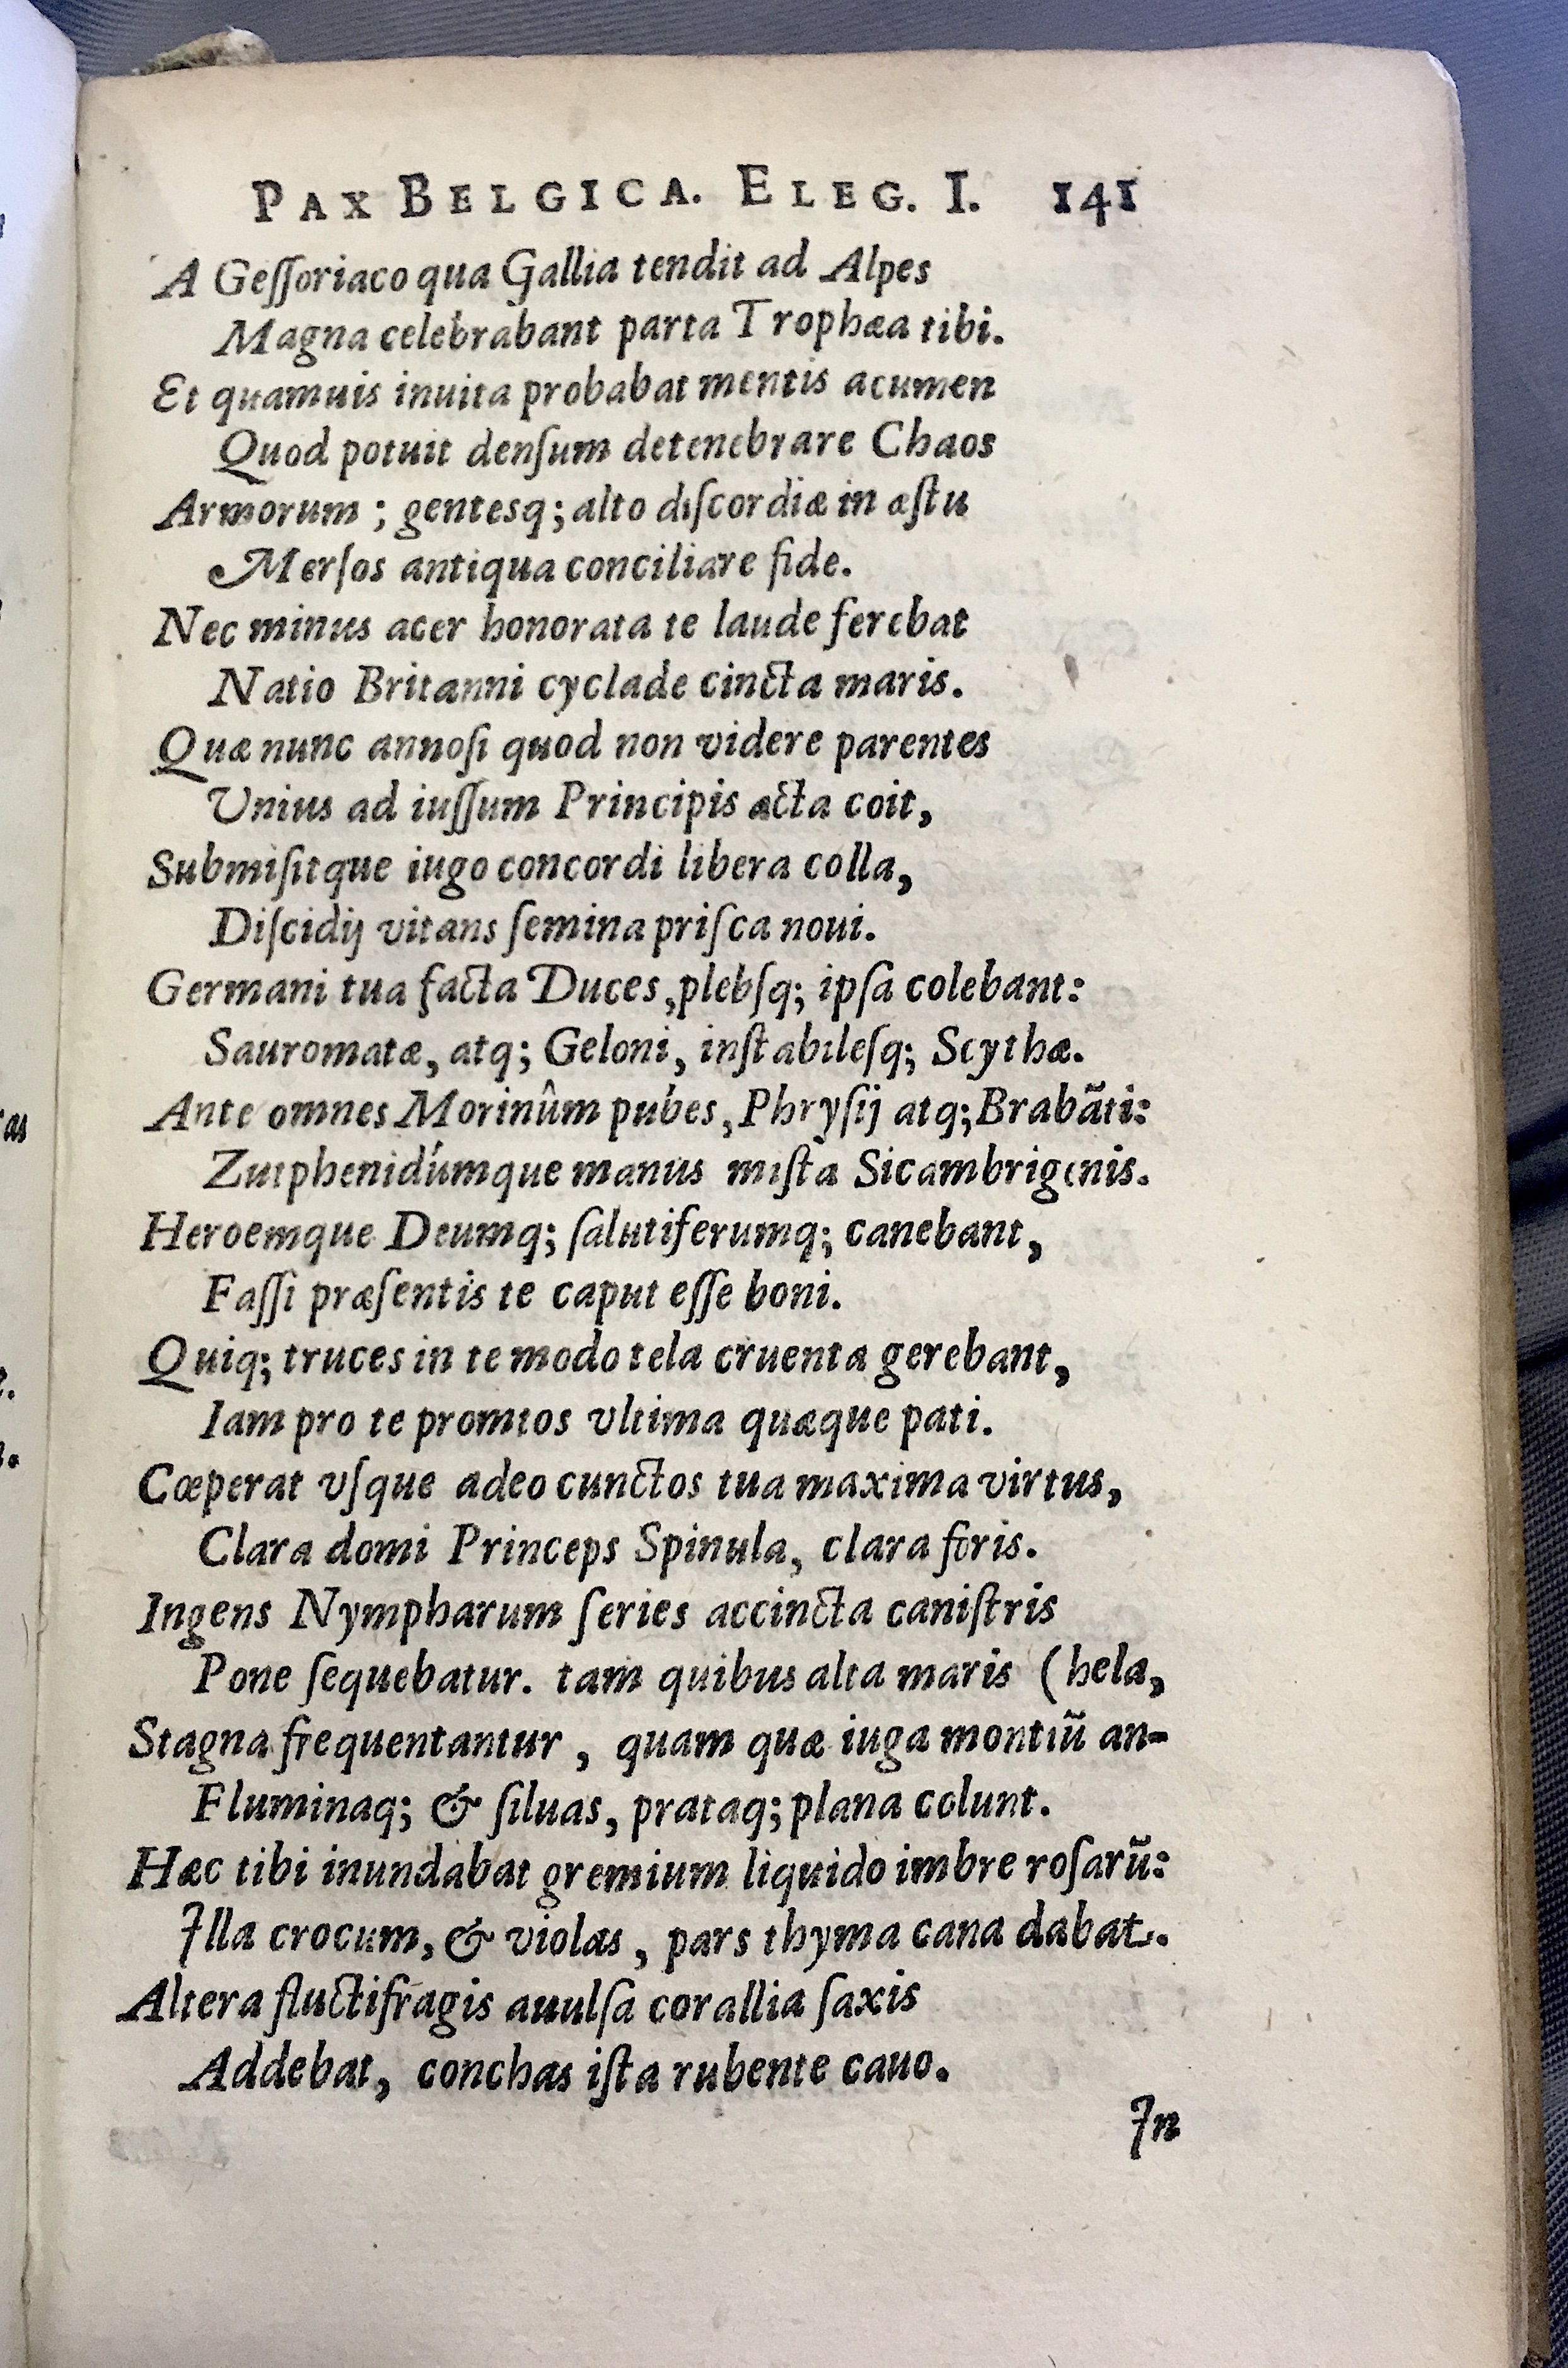 PAX BELGICA. ELEG. I. 141
A Geſſoriaco qua Gallia tendit ad Alpes
Magna celebrabant parta Trophæa tibi.
Et quamuis inuita probabat mentis acumen
Quod potuit denſum detenebrare Chaos
Armorum ; gentesq; alto diſcordiæ in æſtu
Merſos antiqua conciliare fide.
Nec minus acer honorata te laude ferebat
Natio Britanni cyclade cincta maris.
Quæ nunc annoſi quod non videre parentes
Unius ad iuſſum Principis acta coit,
Submiſitque iugo concordi libera colla,
Diſcidij vitans ſemina priſca noui.
Germani tua facta Duces, plebſq; ipſa colebant:
Sauromatæ, atq; Geloni, inſtabileſq; Scythæ.
Ante omnes Morinûm pubes, Phryſij atq; Brabãti:
Zutphenidúmque manus miſta Sicambrigenis.
Heroemque Deumq; ſalutiferumq; canebant,
Faſſi præſentis te caput eſſe boni.
Quiq; truces in te modo tela cruenta gerebant,
Iam pro te promtos vltima quæque pati.
Cœperat vſque adeo cunctos tua maxima virtus,
Clara domi Princeps Spinula, clara foris.
Ingens Nympharum ſeries accincta caniſtris
Pone ſequebatur. tam quibus alta maris (hela,
Stagna frequentantur , quam quæ iuga montiũ an-
Fluminaq; & ſiluas, prataq; plana colunt.
Hæc tibi inundabat gremium liquido imbre roſarũ:
Illa crocum, & violas, pars thyma cana dabat.
Altera fluctifragis auulſa corallia ſaxis
Addebat, conchas iſta rubente cauo.
In